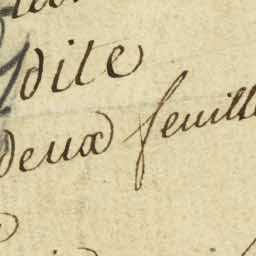 dite
deux feuill